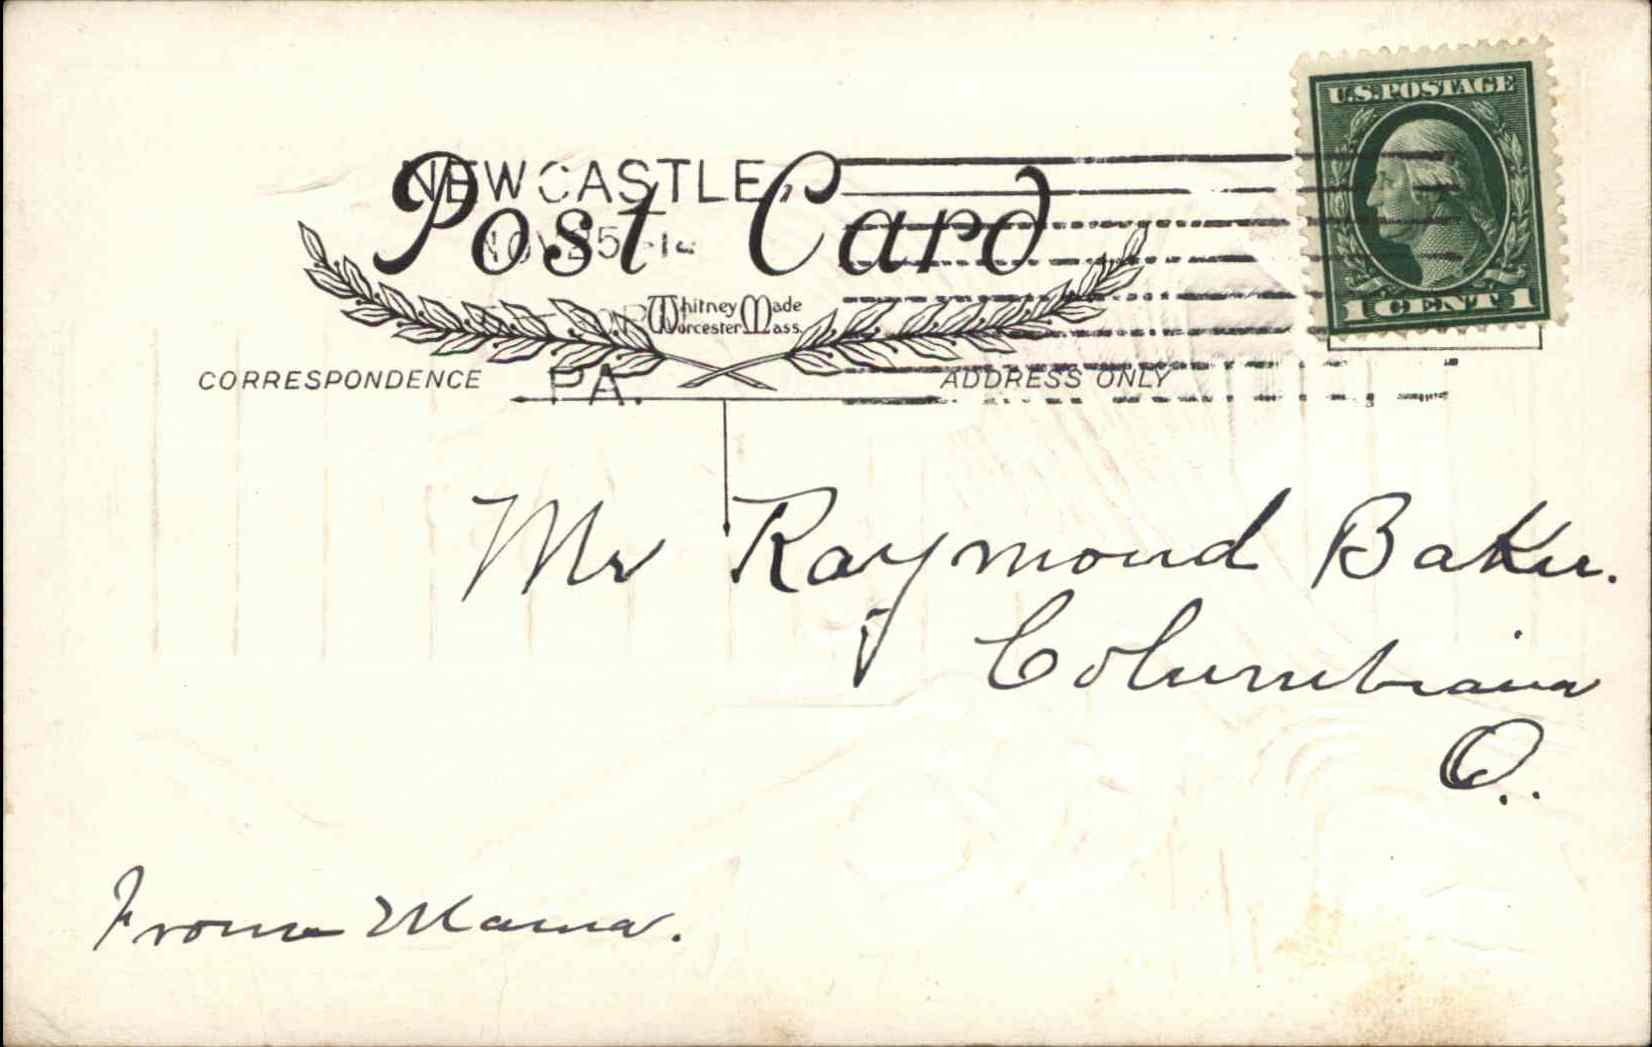 U.S. POSTAGE
1 CENT 1
NEWCASTLE,
NOV 25
PA.
Post Card
Whitney Made
Worcester Mass.
CORRESPONDENCE
ADDRESS ONLY
Mr Raymond Baker.
Columbiana
O.
From Mama.